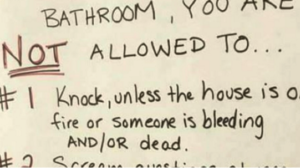 BATHROOM, YOU ARE
NOT ALLOWED TO...
#1 Knock, unless the house is o
fire or someone is bleeding
AND/OR dead.
#2 Scream